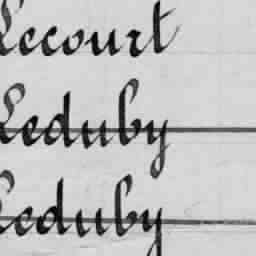 Lecourt
Leduby
Leduby